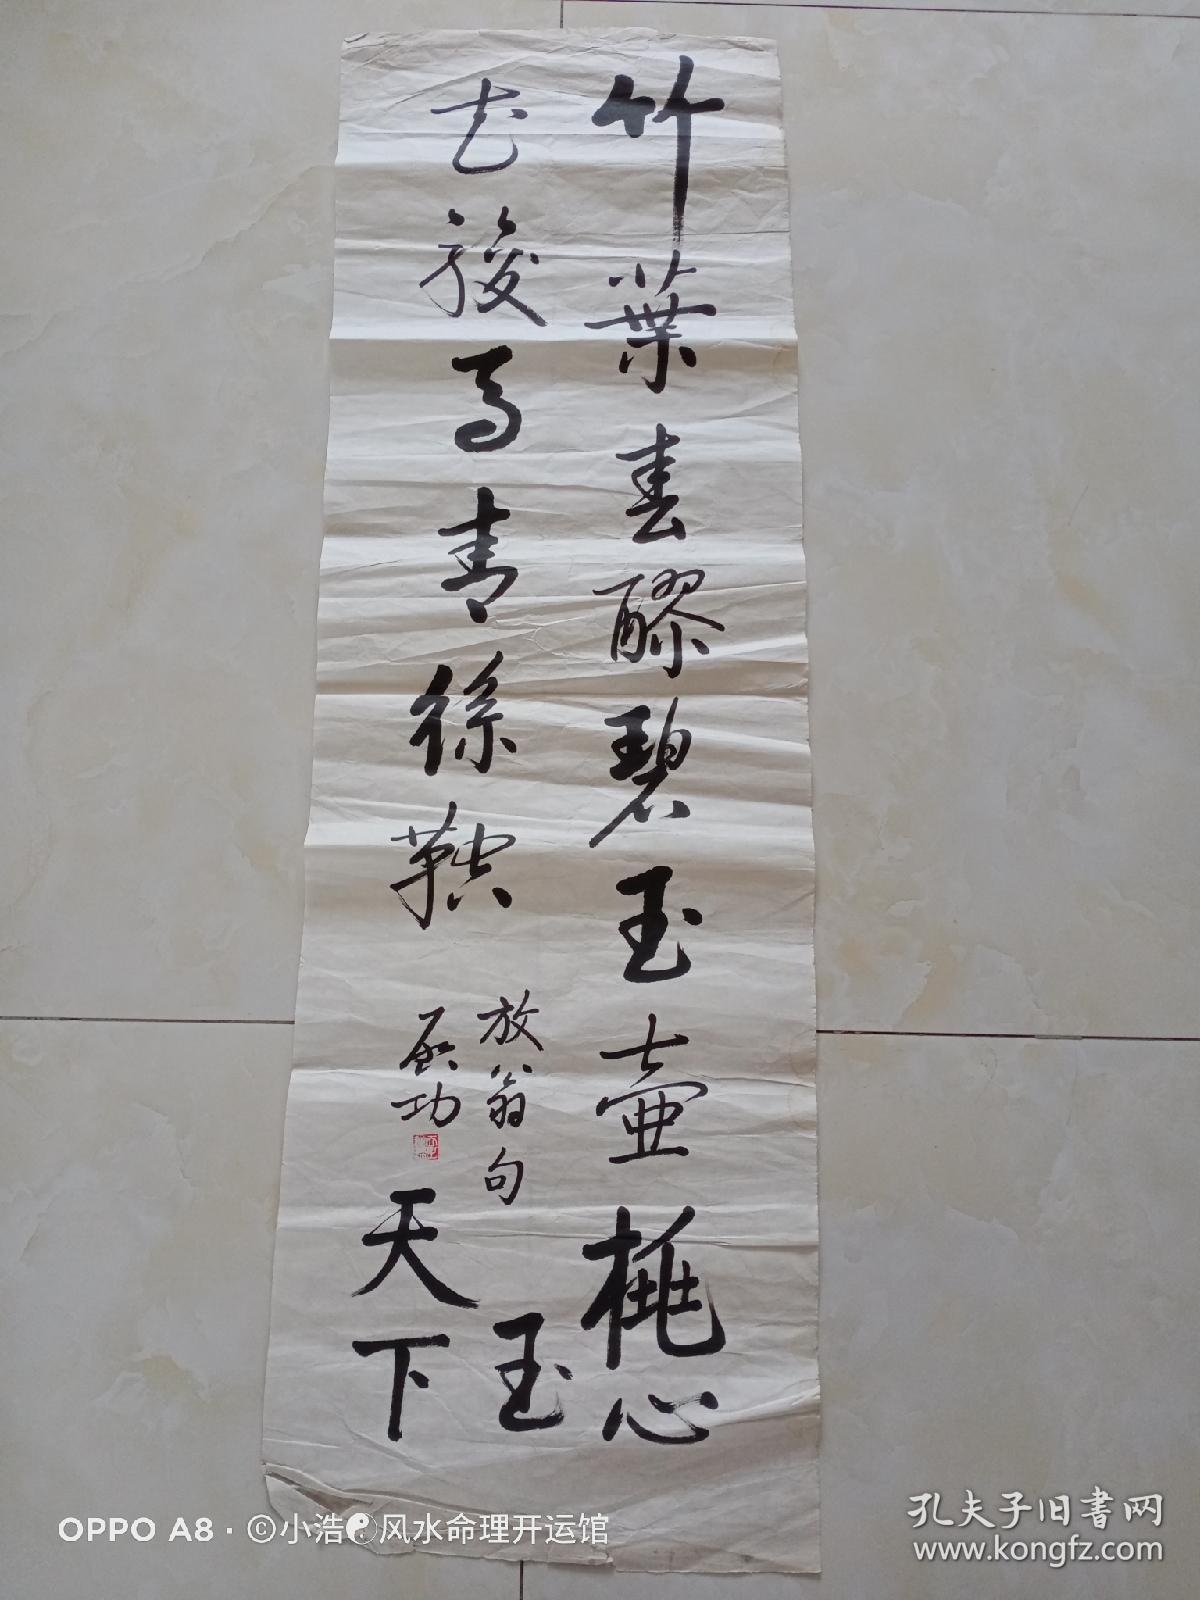 竹葉春醪碧玉壺桃心
花駿馬青絲鞚
放翁句
啟功
玉
天下
OPPO A8 · ©小浩☯风水命理开运馆
孔夫子旧书网
www.kongfz.com